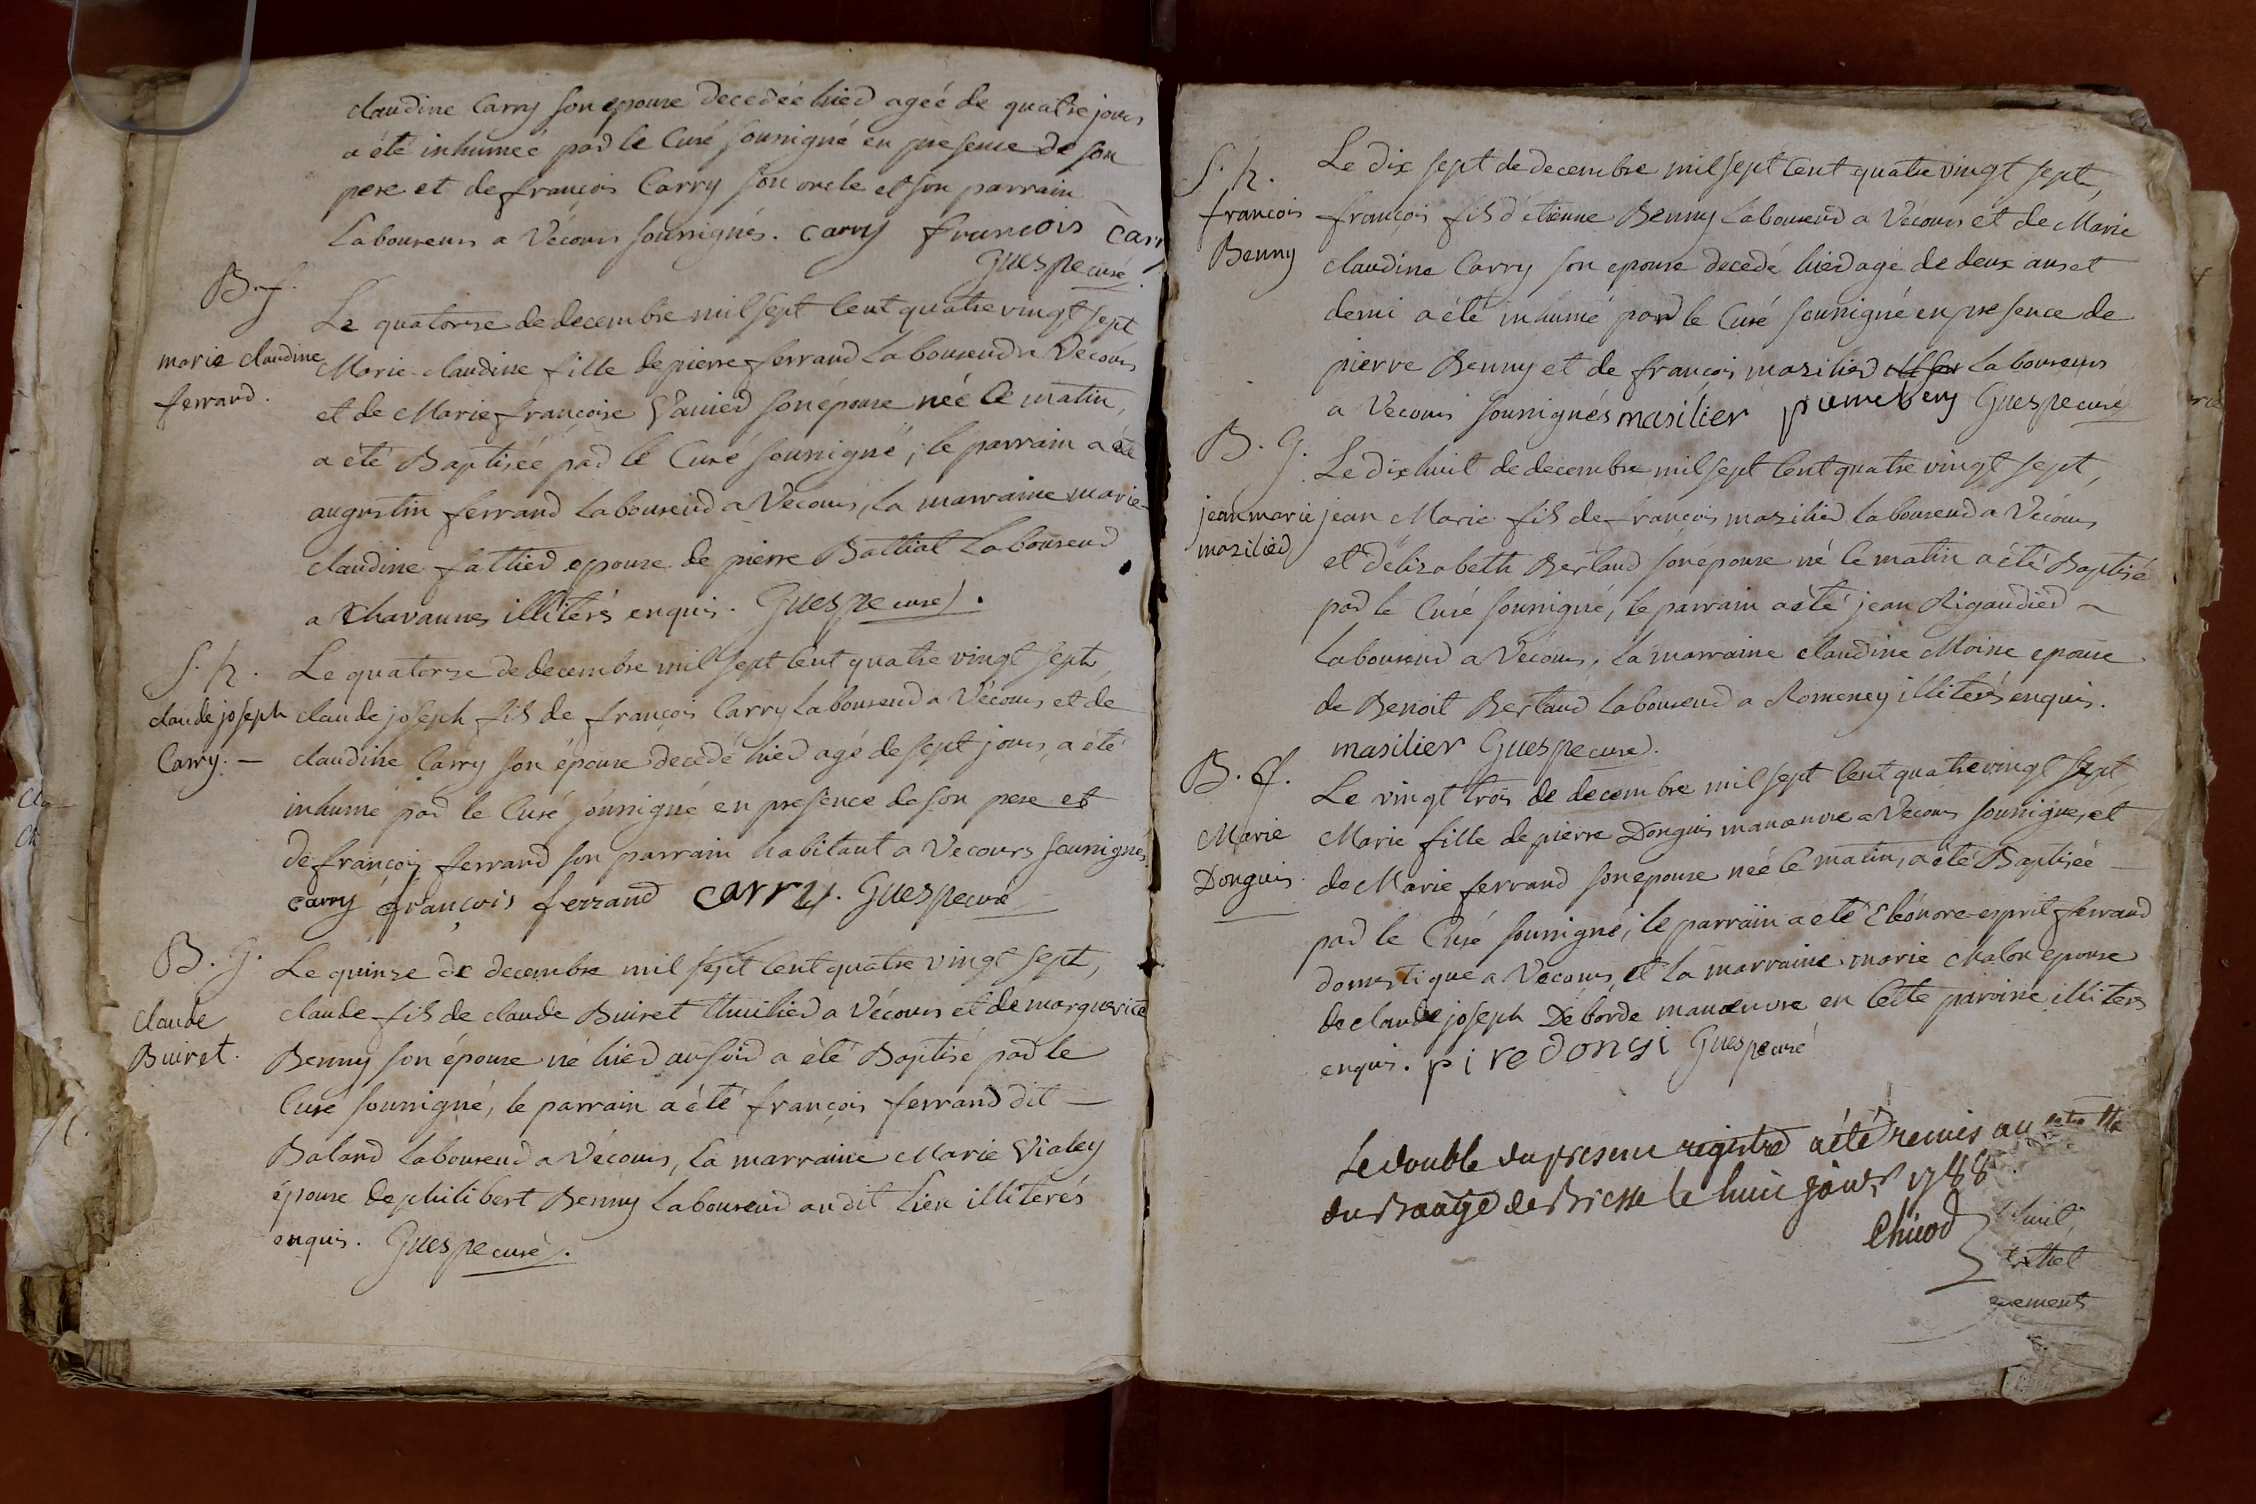 claudine Carry son epouse decedée hier ageé de quatre jours
a été inhumeé par le Curé soussigné en presence de son
pere et de françois Carry son oncle et son parrain
Laboureurs a Vécours soussignés. carry francois Carr
Guespe curé
B. f.
marie claudine
ferrand.
Le quatorze de decembre mil sept Cent quatre vingt sept
Marie-claudine fille de pierre ferrand Laboureur a Vécours
et de Marie françoise son épouse neé ce matin,
a été Baptiseé par le Curé soussigné, le parrain a été
augustin ferrand Laboureur a Vécours, La marraine marie
claudine fattier epouse de pierre Balliat Laboureur
a Chavannes illiterés enquis. Guespe curé.
S. h.
claude joseph
Carry. —
Le quatorze de decembre mil sept Cent quatre vingt sept,
claude joseph fils de françois Carry Laboureur a Vécours et de
claudine Carry son épouse decedé hier agé de sept jours, a été
inhumé par le Curé soussigné en presence de son pere et
de françois ferrand son parrain habitant a Vecours soussignés
carry françois ferrand carry. Guespe curé
B. G.
claude
Buiret.
Le quinze de decembre mil sept Cent quatre vingt sept,
claude fils de claude Buiret thuilier a Vécours et de marguerite
Benny son épouse né hier au soir a été Baptisé par le
Curé soussigné, le parrain a été françois ferrand dit —
Baland Laboureur a Vécours, La marraine Marie Vialey
épouse de philibert Benny Laboureur audit Lieu illiterés
enquis. Guespe curé.
S. h.
francois
Benny
Le dix sept de decembre mil sept Cent quatre vingt sept,
françois fils d'étienne Benny Laboureur a Vécours et de Marie
claudine Carry son epouse decedé hier agé de deux ans et
demi a été inhumé par le Curé soussigné en presence de
pierre Benny et de françois mazilier Laboureurs
a Vecours soussignés masilier pierre beny Guespe curé
B. G.
jean marie
mazilier
Le dix huit de decembre mil sept Cent quatre vingt sept,
jean Marie fils de françois mazilier Laboureur a Vécours
et d'elizabeth Bertaud son epouse né ce matin a été Baptisé
par le Curé soussigné, le parrain a été jean Rigaudier ~
Laboureur a Vécours, La marraine claudine Moine epouse
de Benoit Bertaud Laboureur a Romeney illiterés enquis.
masilier Guespe curé.
B. f.
Marie
Donguis
Le vingt trois de decembre mil sept Cent quatre vingt sept,
Marie fille de pierre Donguis manœuvre a Vecours soussigné, et
de Marie ferrand son epouse neé ce matin, a été Baptiseé —
par le Curé soussigné, le parrain a été Eléonore-esprit ferrand
domestique a Vecours, et la marraine marie Chalon epouse
de claude joseph Deborde manœuvre en Cette paroisse illiterés
enquis. pire dongi Guespe curé
Le double du present registre a été remis au
du Baage de Bresse le huit janvr 1788
Chicod